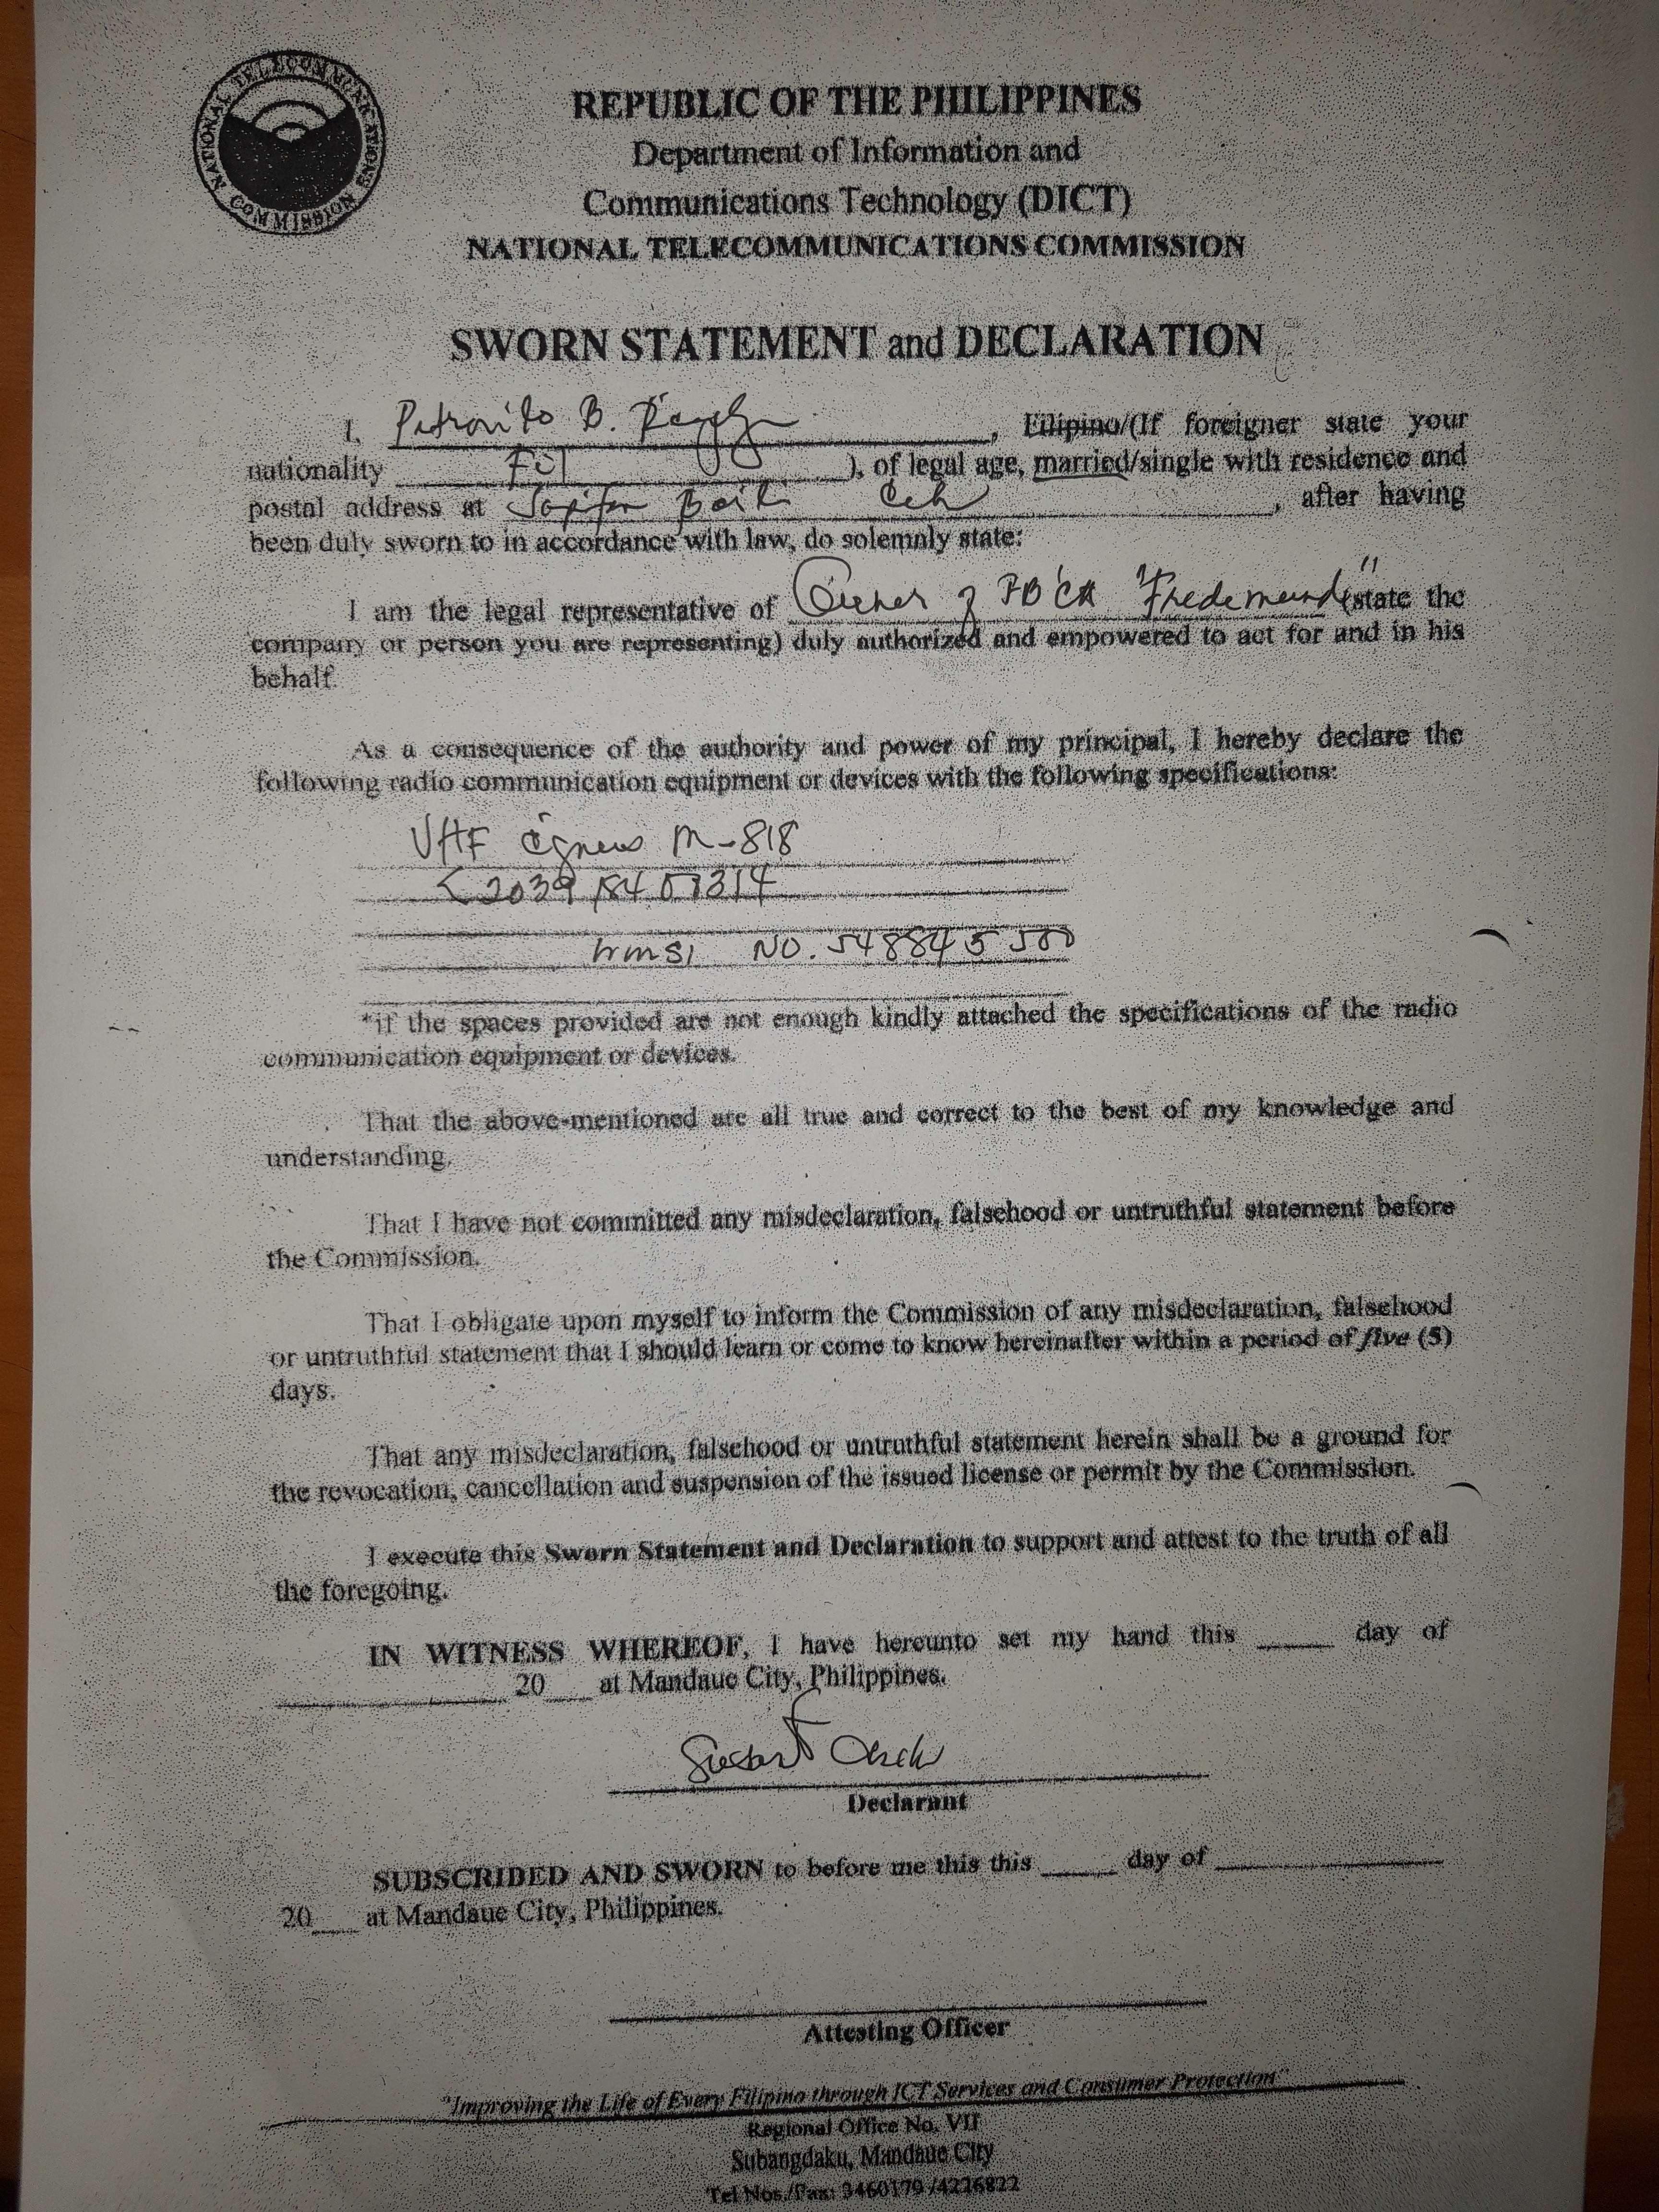 NATIONAL TELECOMMUNICATIONS COMMISSION
REPUBLIC OF THE PHILIPPINES
Department of Information and
Communications Technology (DICT)
NATIONAL TELECOMMUNICATIONS COMMISSION
SWORN STATEMENT and DECLARATION
I, Petronito B. , Filipino/(If foreigner state your
nationality Fil ), of legal age, married/single with residence and
postal address at , after having
been duly sworn to in accordance with law, do solemnly state:
I am the legal representative of Owner of "Fredemund" (state the
company or person you are representing) duly authorized and empowered to act for and in his
behalf.
As a consequence of the authority and power of my principal, I hereby declare the
following radio communication equipment or devices with the following specifications:
VHF M-818
NO. 548845500
*if the spaces provided are not enough kindly attached the specifications of the radio
communication equipment or devices.
That the above-mentioned are all true and correct to the best of my knowledge and
understanding.
That I have not committed any misdeclaration, falsehood or untruthful statement before
the Commission.
That I obligate upon myself to inform the Commission of any misdeclaration, falsehood
or untruthful statement that I should learn or come to know hereinafter within a period of five (5)
days.
That any misdeclaration, falsehood or untruthful statement herein shall be a ground for
the revocation, cancellation and suspension of the issued license or permit by the Commission.
I execute this Sworn Statement and Declaration to support and attest to the truth of all
the foregoing.
IN WITNESS WHEREOF, I have hereunto set my hand this ____ day of
____ 20__ at Mandaue City, Philippines.
Declarant
SUBSCRIBED AND SWORN to before me this this ____ day of ____
20__ at Mandaue City, Philippines.
Attesting Officer
"Improving the Life of Every Filipino through ICT Services and Consumer Protection"
Regional Office No. VII
Subangdaku, Mandaue City
Tel Nos./Fax: 3460179 /4226822